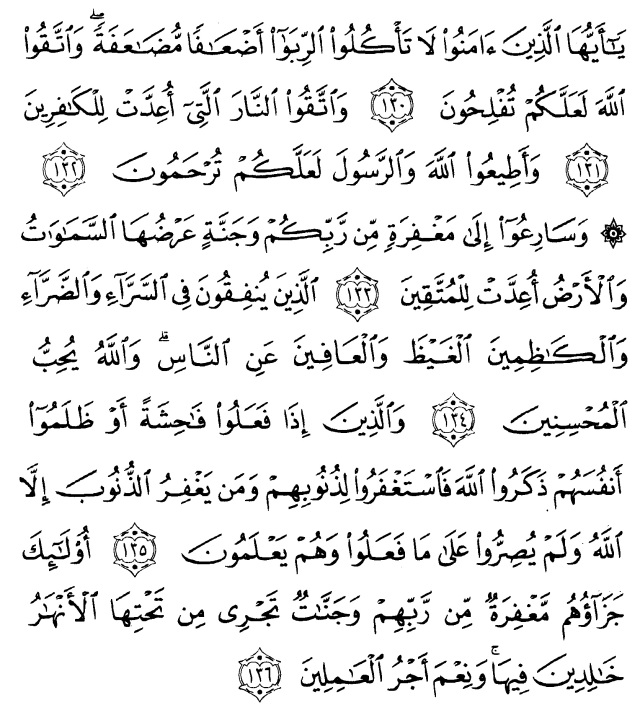 يَـٰٓأَيُّهَا ٱلَّذِينَ ءَامَنُوا۟ لَا تَأْكُلُوا۟ ٱلرِّبَوٰٓا۟ أَضْعَـٰفًا مُّضَـٰعَفَةً ۖ وَٱتَّقُوا۟
ٱللَّهَ لَعَلَّكُمْ تُفْلِحُونَ ١٣٠ وَٱتَّقُوا۟ ٱلنَّارَ ٱلَّتِىٓ أُعِدَّتْ لِلْكَـٰفِرِينَ
١٣١ وَأَطِيعُوا۟ ٱللَّهَ وَٱلرَّسُولَ لَعَلَّكُمْ تُرْحَمُونَ ١٣٢
۞ وَسَارِعُوٓا۟ إِلَىٰ مَغْفِرَةٍ مِّن رَّبِّكُمْ وَجَنَّةٍ عَرْضُهَا ٱلسَّمَـٰوَٰتُ
وَٱلْأَرْضُ أُعِدَّتْ لِلْمُتَّقِينَ ١٣٣ ٱلَّذِينَ يُنفِقُونَ فِى ٱلسَّرَّآءِ وَٱلضَّرَّآءِ
وَٱلْكَـٰظِمِينَ ٱلْغَيْظَ وَٱلْعَافِينَ عَنِ ٱلنَّاسِ ۗ وَٱللَّهُ يُحِبُّ
ٱلْمُحْسِنِينَ ١٣٤ وَٱلَّذِينَ إِذَا فَعَلُوا۟ فَـٰحِشَةً أَوْ ظَلَمُوٓا۟
أَنفُسَهُمْ ذَكَرُوا۟ ٱللَّهَ فَٱسْتَغْفَرُوا۟ لِذُنُوبِهِمْ وَمَن يَغْفِرُ ٱلذُّنُوبَ إِلَّا
ٱللَّهُ وَلَمْ يُصِرُّوا۟ عَلَىٰ مَا فَعَلُوا۟ وَهُمْ يَعْلَمُونَ ١٣٥ أُو۟لَـٰٓئِكَ
جَزَآؤُهُم مَّغْفِرَةٌ مِّن رَّبِّهِمْ وَجَنَّـٰتٌ تَجْرِى مِن تَحْتِهَا ٱلْأَنْهَـٰرُ
خَـٰلِدِينَ فِيهَا ۚ وَنِعْمَ أَجْرُ ٱلْعَـٰمِلِينَ ١٣٦